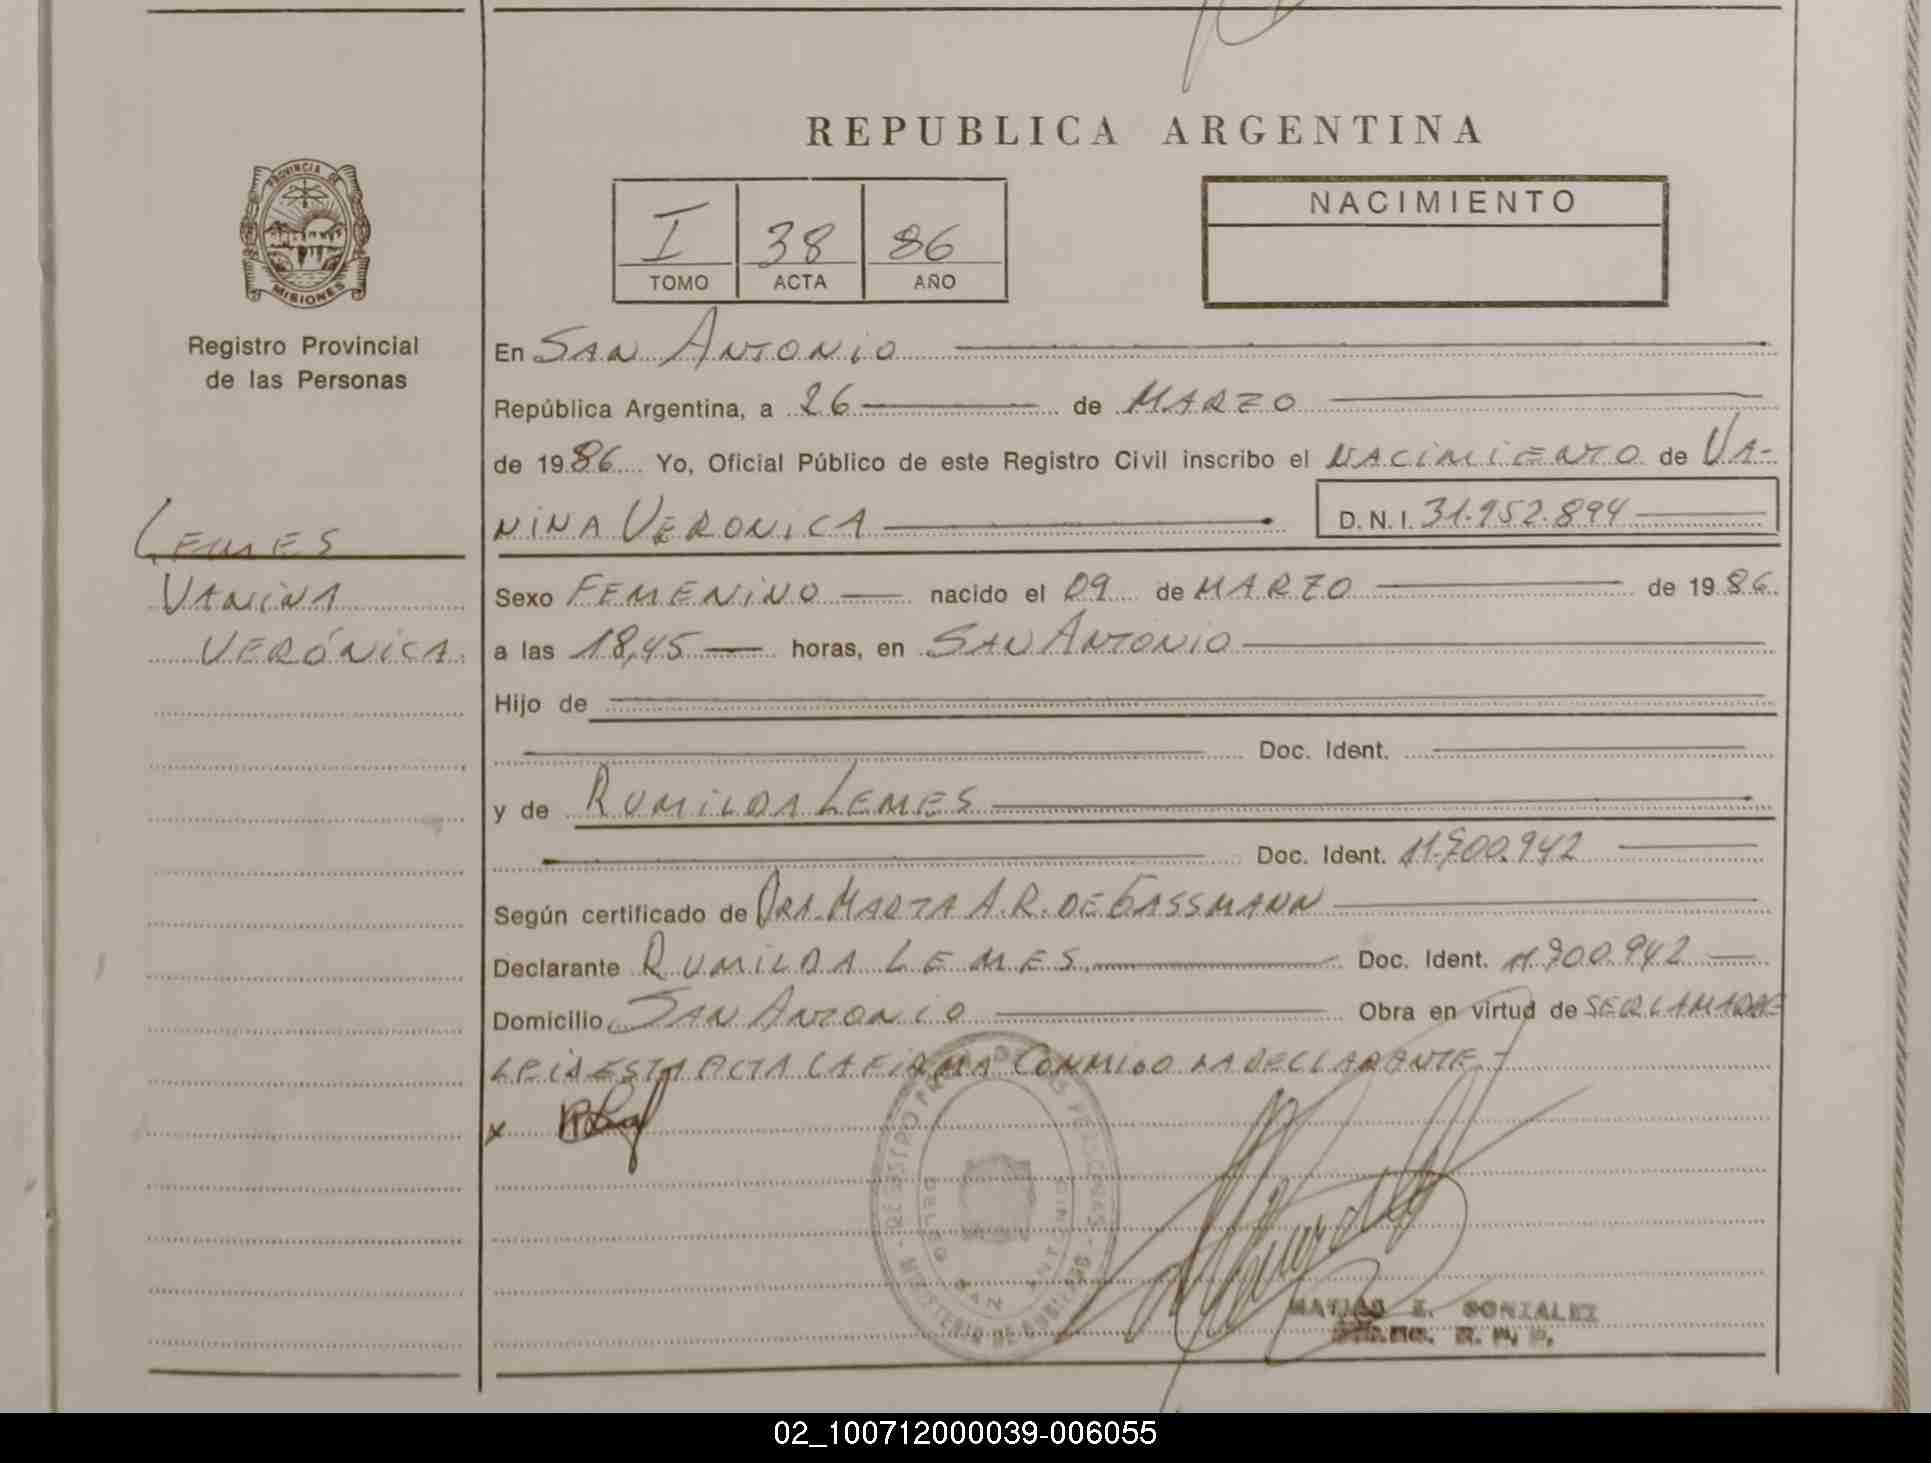 REPUBLICA ARGENTINA
PROVINCIA DE
MISIONES
Registro Provincial
de las Personas
I 38 86
TOMO ACTA AÑO
NACIMIENTO
En SAN ANTONIO
República Argentina, a 26 de MARZO
de 1986 Yo, Oficial Público de este Registro Civil inscribo el NACIMIENTO de VA-
NINA VERONICA D. N. I. 31.952.894
LEMES
VANINA
VERÓNICA.
Sexo FEMENINO nacido el 09 de MARZO de 1986.
a las 18,45 horas, en SAN ANTONIO
Hijo de
Doc. Ident.
y de RUMILDA LEMES
Doc. Ident. 11.700.942
Según certificado de DRA. MARTA A.R. DE GASSMANN
Declarante RUMILDA LEMES Doc. Ident. 11.700.942
Domicilio SAN ANTONIO Obra en virtud de SER LA MADRE
LEIDA ESTA ACTA LA FIRMA CONMIGO LA DECLARANTE-
x
REGISTRO DE LAS PERSONAS
DELEG SAN ANTONIO
MINISTERIO DE GOBIERNO
GONZALEZ
R. P. P.
02_100712000039-006055